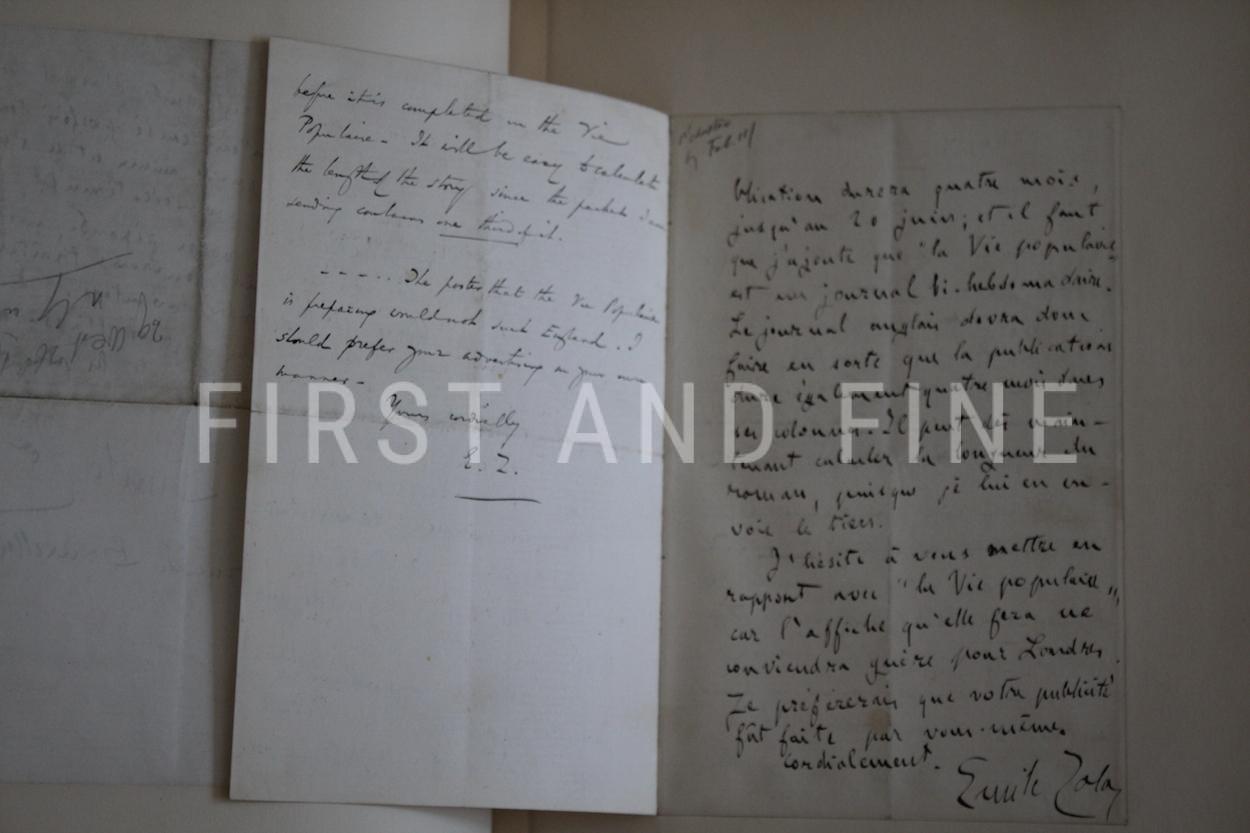 before it is completed in the Vie
Populaire - It will be easy to calculate
the length of the story since the packet I am
sending contains one third of it.
- - - - . . The poster that the Vie Populaire
is preparing would not suit England. I
should prefer your advertising in your own
manner -
Yours cordially
E. Z.
by Feb. 18/
blication durera quatre mois,
jusqu'au 20 juin; et il faut
que j'ajoute que "la Vie populaire"
est un journal bi-hebdomadaire.
Le journal anglais devra donc
faire en sorte que la publication
dure également quatre mois dans
ses colonnes. Il peut dès main-
tenant calculer la longueur du
roman, puisque je lui en en-
voie le tiers.
J'hésite à vous mettre en
rapport avec "la Vie populaire",
car l'affiche qu'elle fera ne
conviendra guère pour Londres.
Je préférerais que votre publicité
fût faite par vous-même.
Cordialement.
Emile Zola
FIRST AND FINE